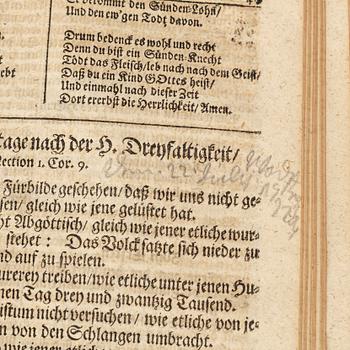 Er bekommt den Sünden-Lohn/
Und den ew'gen Todt davon.
Drum bedenck es wohl und recht
Denn du bist ein Sünden-Knecht
Tödt das Fleisch/leb nach nach dem Geist/
Daß du ein Kind GOttes heist/
Und einmahl nach dieser Zeit
Dort ererbst die Herrlichkeit/Amen.
tage nach der H. Dreyfaltigkeit/
ection 1. Cor. 9.
Fürbilde geschehen/daß wir uns nicht ge-
sen/gleich wie jene gelüstet hat.
ht Abgöttisch/gleich wie jener etliche wur-
stehet: Das Volck satzte sich nieder zu
nd auf zu spielen.
urerey treiben/wie etliche unter jenen Hu-
nen Tag drey und zwantzig Tausend.
istum nicht versuchen/wie etliche von je-
n von den Schlangen umbracht.
wie jener etliche